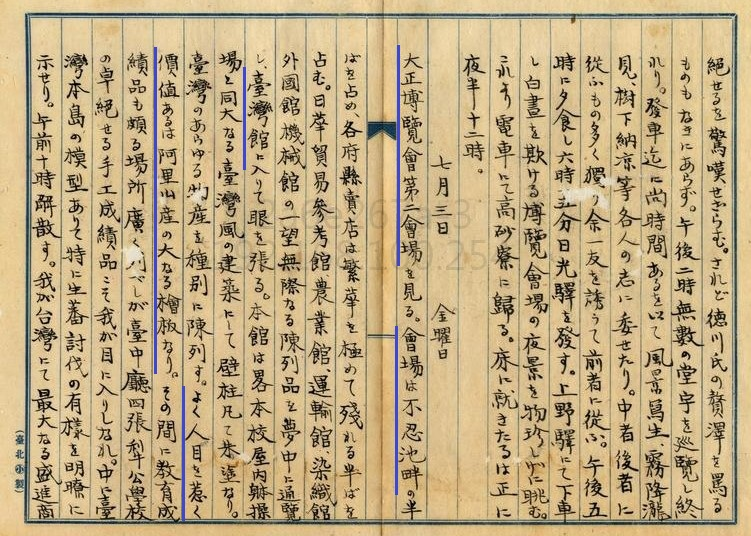 絶せるを驚嘆せざらむ。されど徳川氏の贅澤を罵る
ものもなきにあらず。午後二時無數の堂宇を巡覧し終
れり。發車迄に尚時間あるを以て風景寫生、霧降瀧
見、樹下納凉等各人の志に委せたり。中者後者に
從ふもの多く獨り余一友を誘うて前者に從ふ。午後五
時に夕食し六時五分日光驛を發す。上野驛にて下車
し白晝を欺ける博覽會場の夜景を物珍しげに眺む。
これより電車にて高砂寮に歸る。床に就きたるは正に
夜半十二時。
七月三日 金曜日
大正博覽會第二會場を見る。會場は不忍池畔の半
ばを占め、各府縣賣店は繁華を極めて殘れる半ばを
占む。日華貿易參考館農業館、運輸館、染織館
外國館機械館の一望無際なる陳列品を夢中に通覽
し、臺灣館に入りて眼を張る。本館は畧本校屋内躰操
場と同大なる臺灣風の建築にして壁柱凡て朱塗なり。
臺灣のあらゆる物産を種別に陳列す。よく人目を惹く
價値あるは阿里山産の大なる檜板なり。その間に教育成
績品も頗る場所廣く列べしが臺中廳四張犂公學校
の卓絶せる手工成績品こそ我が目に入りしなれ。中に臺
灣本島の模型ありて特に生蕃討伐の有樣を明瞭に
示せり。午前十時解散す。我が台灣にて最大なる盛進商
(臺北小製)